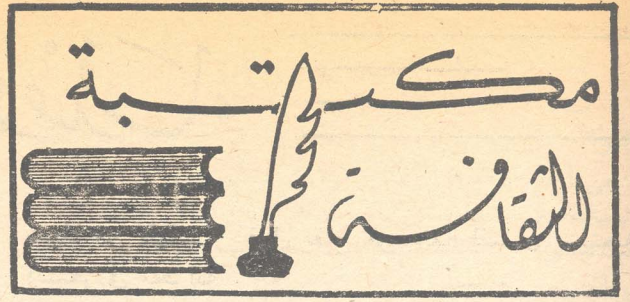 مكتبة
الثقافة